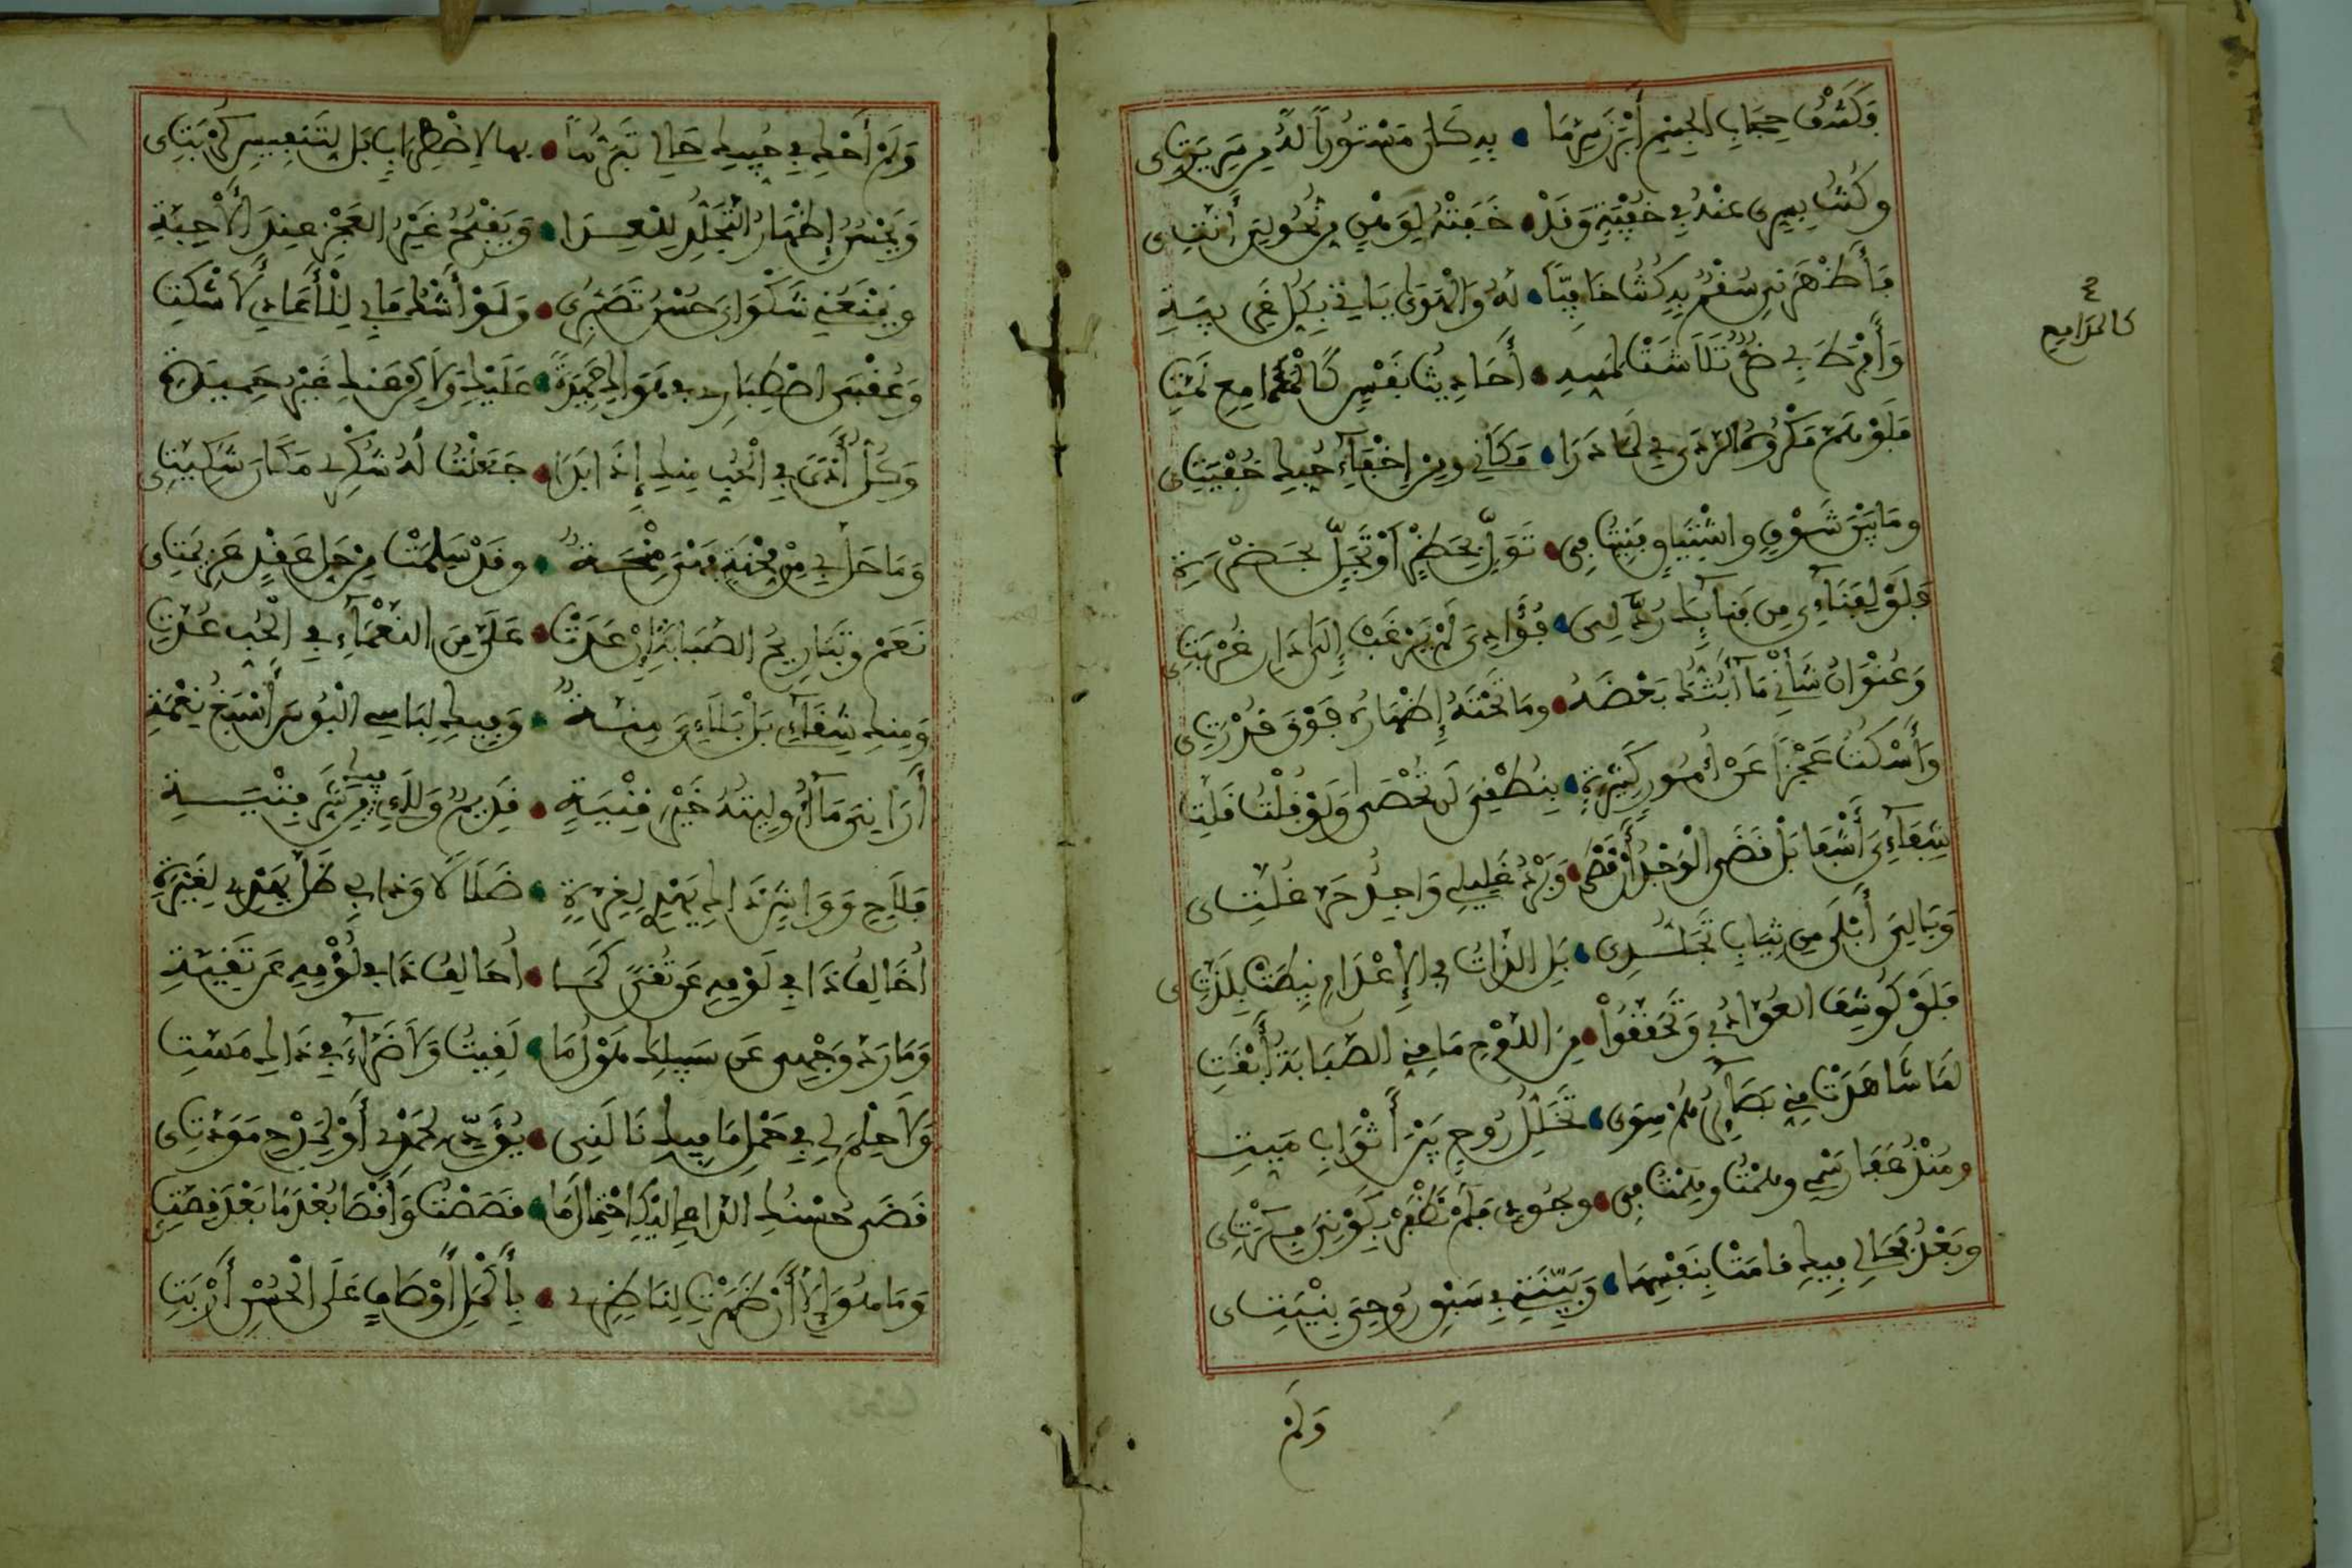 وَكَشْفُ حِجَابِ الْجِسْمِ أَبْرَزَ سِرَّ مَا • بِهِ كَانَ مَسْتُوراً لَهُ مِن سَرِيرَتِى
وكُنتُ بِسِرِّى عَنْهُ فِي خُفْيَةٍ وَقَدْ • خَفَتْهُ لِوَهْنٍ مِن نُحُولِىَ أَنَّتِى
فَأَظْهَرَنِى سُقْمٌ بِهِ كُنتُ خَافِياً • لَهُ وَالْهَوَى يَاتِي بِكُلِّ غَرِيبَةِ
وَأَفْرَطَ بِي ضُرٌّ تَلَاشَتْ لِمَسِّهِ • أَحَادِيثُ نَفْسٍ كَالْمَدَامِعِ نَمَّتِ
كالمدامع
فَلَوْ هَمَّ مَكْرُوهُ الرَّدَى بِي لَمَا دَرَا • مَكَانِي ومِن إِخْفَاءِ حُبِّكِ خُفْيَتِى
ومَا بَيْنَ شَوْقٍ واشْتِيَاقٍ فَنِيتُ فِى • تَوَلٍّ بِحَظْرٍ أَوْ تَجَلٍّ بِحَضْرَةِ
فَلَوْ لِفَنَاءِى مِن فَنَائِكِ رُدَّ لِى • فُؤَادِىَ لَمْ يَرْغَبْ إِلَى دَارِ غُرْبَتِى
وَعُنْوَانُ شَأْنِي مَا أَبُثُّكِ بَعْضَهُ • ومَا تَحْتَهُ إِظْهَارُهُ فَوْقَ قُدْرَتِى
وَأَسْكُتُ عَجْزاً عَنْ أُمُورٍ كَثِيرَةٍ • بِنُطْقِىَ لَن تُحْصَى وَلَوْ قُلْتُ قَلَّتِ
شِفَاءِىَ أَشْفَا بَلْ قَضَى الْوَجْدُ أَنْ قَضَى • وَبَرْدُ غَلِيلِي وَاجِدٌ حَرَّ غُلَّتِى
وَبَالِىَ أَبْلَى مِن ثِيَابِ تَجَلُّدِى • بَلِ الذَّاتُ فِي الإِعْدَامِ نِيطَتْ بِلَذَّتِى
فَلَوْ كُوشِفَ العُوَّادُ بِي وَتَحَقَّقُوا • مِنَ اللَّوْحِ مَا مِنِّي الصَّبَابَةُ أَبْقَتِ
لَمَا شَاهَدَتْ مِنِّي بَصَائِرُهُمْ سِوَى • تَخَلُّلِ رُوحٍ بَيْنَ أَثْوَابِ مَيِّتِ
ومُنْذُ عَفَا رَسْمِي وهِمْتُ وهِمْتُ فِى • وجُودِي فَلَمْ تَظْفَرْ بِكَوْنِىَ فِكْرَتِى
وبَعْدُ فَحَالِي فِيكِ قامَتْ بِنَفْسِهَا • وَبَيِّنَتِي فِي سَبْقِ رُوحِى بِنْيَتِى
وَلَمْ
وَلَمْ أَحْكِ فِي حُبِّيكِ حَالِي تَبَرُّماً • بها لاِضْطِرَابٍ بَل لِتَنفِيسِ كُرْبَتِى
وَيَحْسُنُ إِظْهَارُ التَّجَلُّدِ لِلْعِدَا • وَيَقْبُحُ غَيْرُ العَجْزِ عِندَ الأَحِبَّةِ
ويَمْنَعُنِي شَكْوَاىَ حُسْنُ تَصَبُّرِى • وَلَوْ أَشْكُ مَا بِي لِلأَعَادِي لَأَشْكَتِ
وَعُقْبَى اصْطِبَارِى فِي هَوَاكِ حَمِيدَةٌ • عَلَيْكِ وَلَاكِن عَنكِ غَيْرُ حَمِيدَةِ
وَكُلُّ أَذًى فِي الْحُبِّ مِنكِ إِذَا بَدَا • جَعَلْتُ لَهُ شُكْرِي مَكَانَ شَكِيَّتِى
وَمَا حَلَّ بِي مِنْ مِحْنَةٍ فَهْىَ مِنْحَةٌ • وقَدْ سَلِمَتْ مِن حَلِّ عَقْدٍ عَزِيمَتِى
نَعَمْ وتَبَارِيحُ الصَّبَابَةِ إِنْ عَدَتْ • عَلَىَّ مِنَ النَّعْمَاءِ فِي الْحُبِّ عُدَّتِ
وَمِنكِ شِقَاءِى بَلْ بَلَاءِىَ مِنَّةٌ • وَفِيكِ لِبَاسِي الْبُؤْسَ أَسْبَغُ نِعْمَةِ
أَرَانِىَ مَا أُولِيتُهُ خَيْرَ قِنْيَةٍ • قَدِيمُ وَلَاءِى فِيكِ مِن شَرِّ فِتْيَةِ
فَلَاحٍ وَوَاشٍ ذَاكِ يَهْدِي لِغِرَّةٍ • ضَلَالاً وَذَا بِي ظَلَّ يَهْدِي لِغَيْرَةِ
أُخَالِفُ ذَا فِي لَوْمِهِ عَن تُقًى كَمَا • أُحَالِفُ ذَا فِي لُؤْمِهِ عَن تَقِيَّةِ
وَمَا رَدَّ وَجْهِى عَن سَبِيلِكِ هَوْلُ مَا • لَقِيتُ وَلَا ضَرَّاءُ فِي ذَاكِ مَسَّتِ
وَلَا حِلْمَ لِي فِي حَمْلِ مَا فِيكِ نَالَنِى • يُؤَدِّي لِحَمْدِي أَوْ لِمَدْحِ مَوَدَّتِى
قَضَى حُسْنُكِ الدَّاعِي إِلَيْكِ احْتِمَالَ مَا • قَصَصْتُ وَأَقْصَا بُعْدَ مَا بَعْدَ قِصَّتِى
وَمَا هُوَ إِلاَّ أَن ظَهَرْتِ لِنَاظِرِى • بِأَكْمَلِ أَوْصَافٍ عَلَى الْحُسْنِ أَرْبَتِ